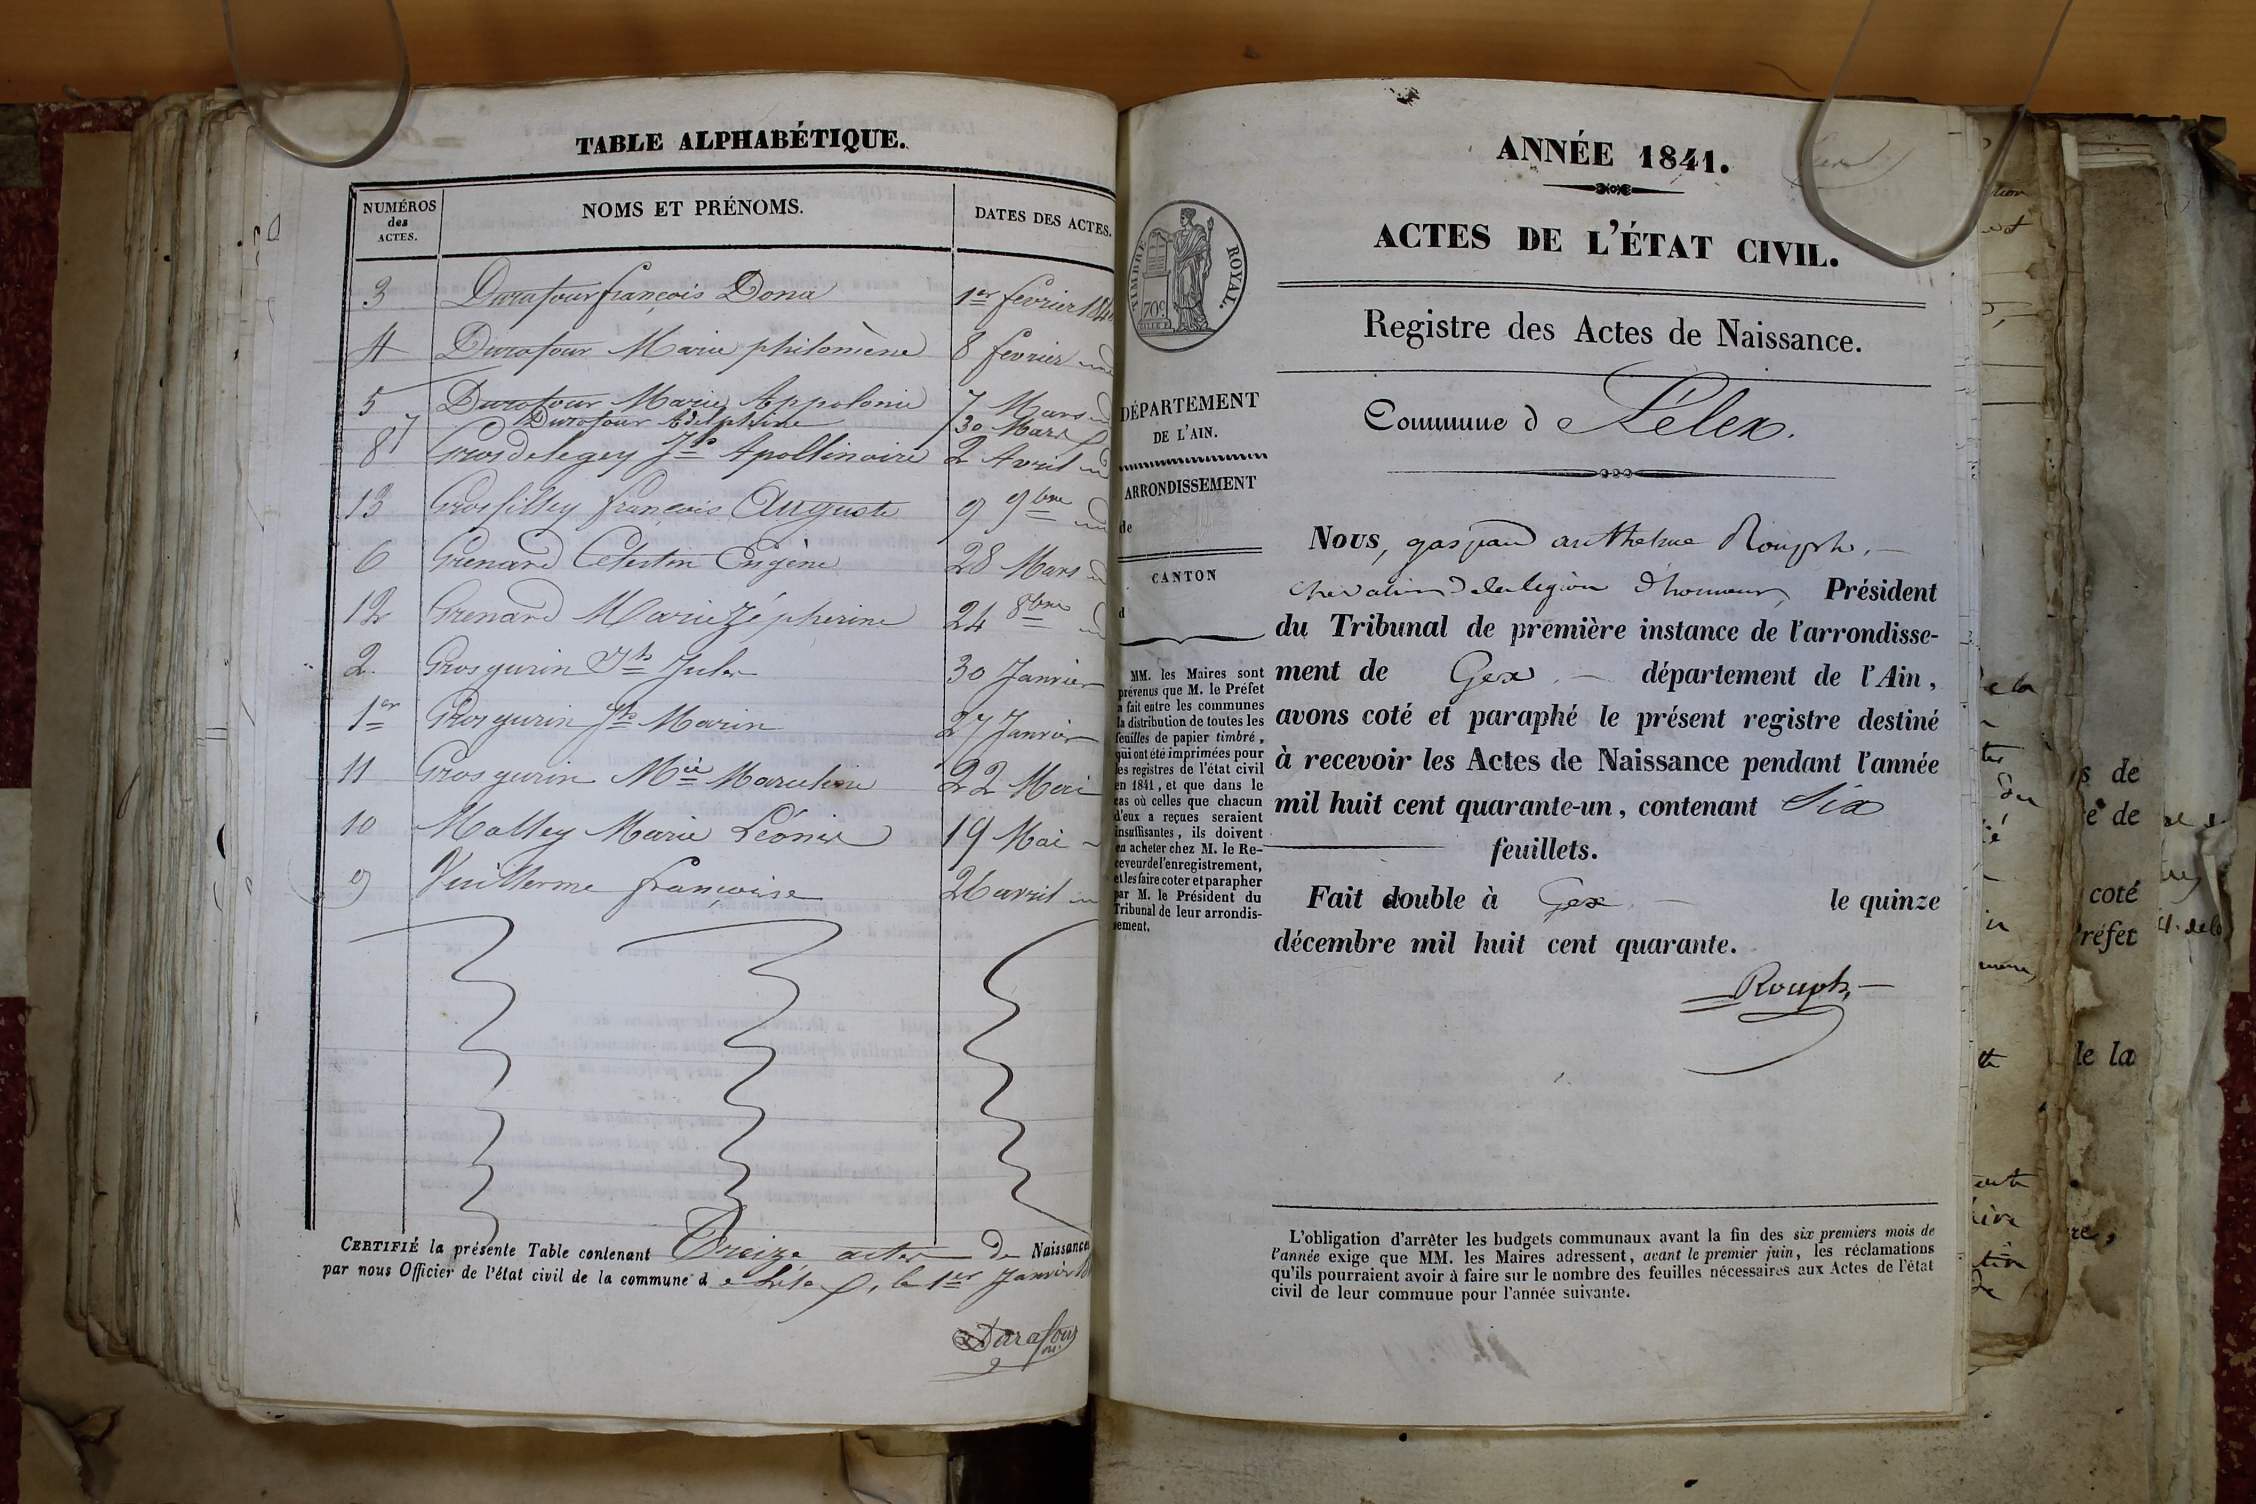 TABLE ALPHABÉTIQUE.
NUMÉROS des ACTES. NOMS ET PRÉNOMS. DATES DES ACTES.
3 Durafour françois Dona 1er février 184
4 Durafour Marie philomène 8 fevrier
5 Durafour Marie Appolonie 7 Mars
7 Durafour Adelphine 30 Mars
8 Grosdelegey Jh Apollinaire 2 Avril
13 Grosfilley françois Auguste 9 9bre
6 Grenard Celestin Eugène 28 Mars
12 Grenard Marie Zépherine 24 8bre
2 Grosgurin Jh Jules 30 Janvier
1er Grosgurin Jh Marin 27 Janvier
11 Grosgurin Mie 22 Mai
10 Malley Marie Léonie 19 Mai
9 Vuillerme françoise 26 avril
CERTIFIÉ la présente Table contenant Treize actes de Naissance
par nous Officier de l'état civil de la commune d e Lélex, le 1er Janvier 18
Durafour
ANNÉE 1841.
ACTES DE L'ÉTAT CIVIL.
Registre des Actes de Naissance.
Commune d Lélex.
TIMBRE ROYAL.
70c
DÉPARTEMENT
DE L'AIN.
ARRONDISSEMENT
de
CANTON
d
MM. les Maires sont
prévenus que M. le Préfet
a fait entre les communes
la distribution de toutes les
feuilles de papier timbré,
qui ont été imprimées pour
les registres de l'état civil
en 1841, et que dans le
cas où celles que chacun
d'eux a reçues seraient
insuffisantes, ils doivent
en acheter chez M. le Re-
ceveur de l'enregistrement,
et les faire coter et parapher
par M. le Président du
Tribunal de leur arrondis-
sement.
Nous, gaspard anthelme Rouph,
chevalier de la legion d'honneur, Président
du Tribunal de première instance de l'arrondisse-
ment de Gex département de l'Ain,
avons coté et paraphé le présent registre destiné
à recevoir les Actes de Naissance pendant l'année
mil huit cent quarante-un, contenant Six
feuillets.
Fait double à Gex le quinze
décembre mil huit cent quarante.
Rouph
L'obligation d'arrêter les budgets communaux avant la fin des six premiers mois de
l'année exige que MM. les Maires adressent, avant le premier juin, les réclamations
qu'ils pourraient avoir à faire sur le nombre des feuilles nécessaires aux Actes de l'état
civil de leur commune pour l'année suivante.
s de
e de
coté
réfet
le la
re,